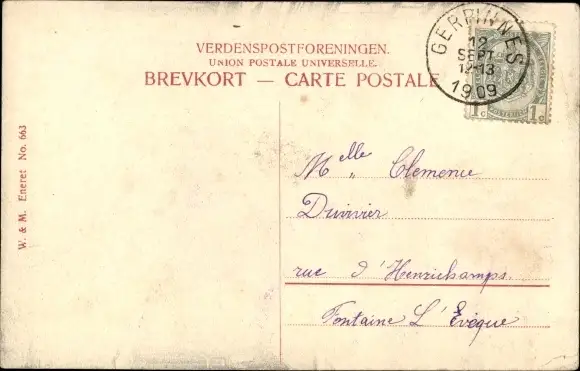 VERDENSPOSTFORENINGEN.
UNION POSTALE UNIVERSELLE.
BREVKORT — CARTE POSTALE
GERPINNES
12
SEPT
12-13
1909
1c 1c
W. & M. Eneret No. 663
Melle „ Clemence
Duivivier
rue d'Henrichamps.
Fontaine L'Évêque